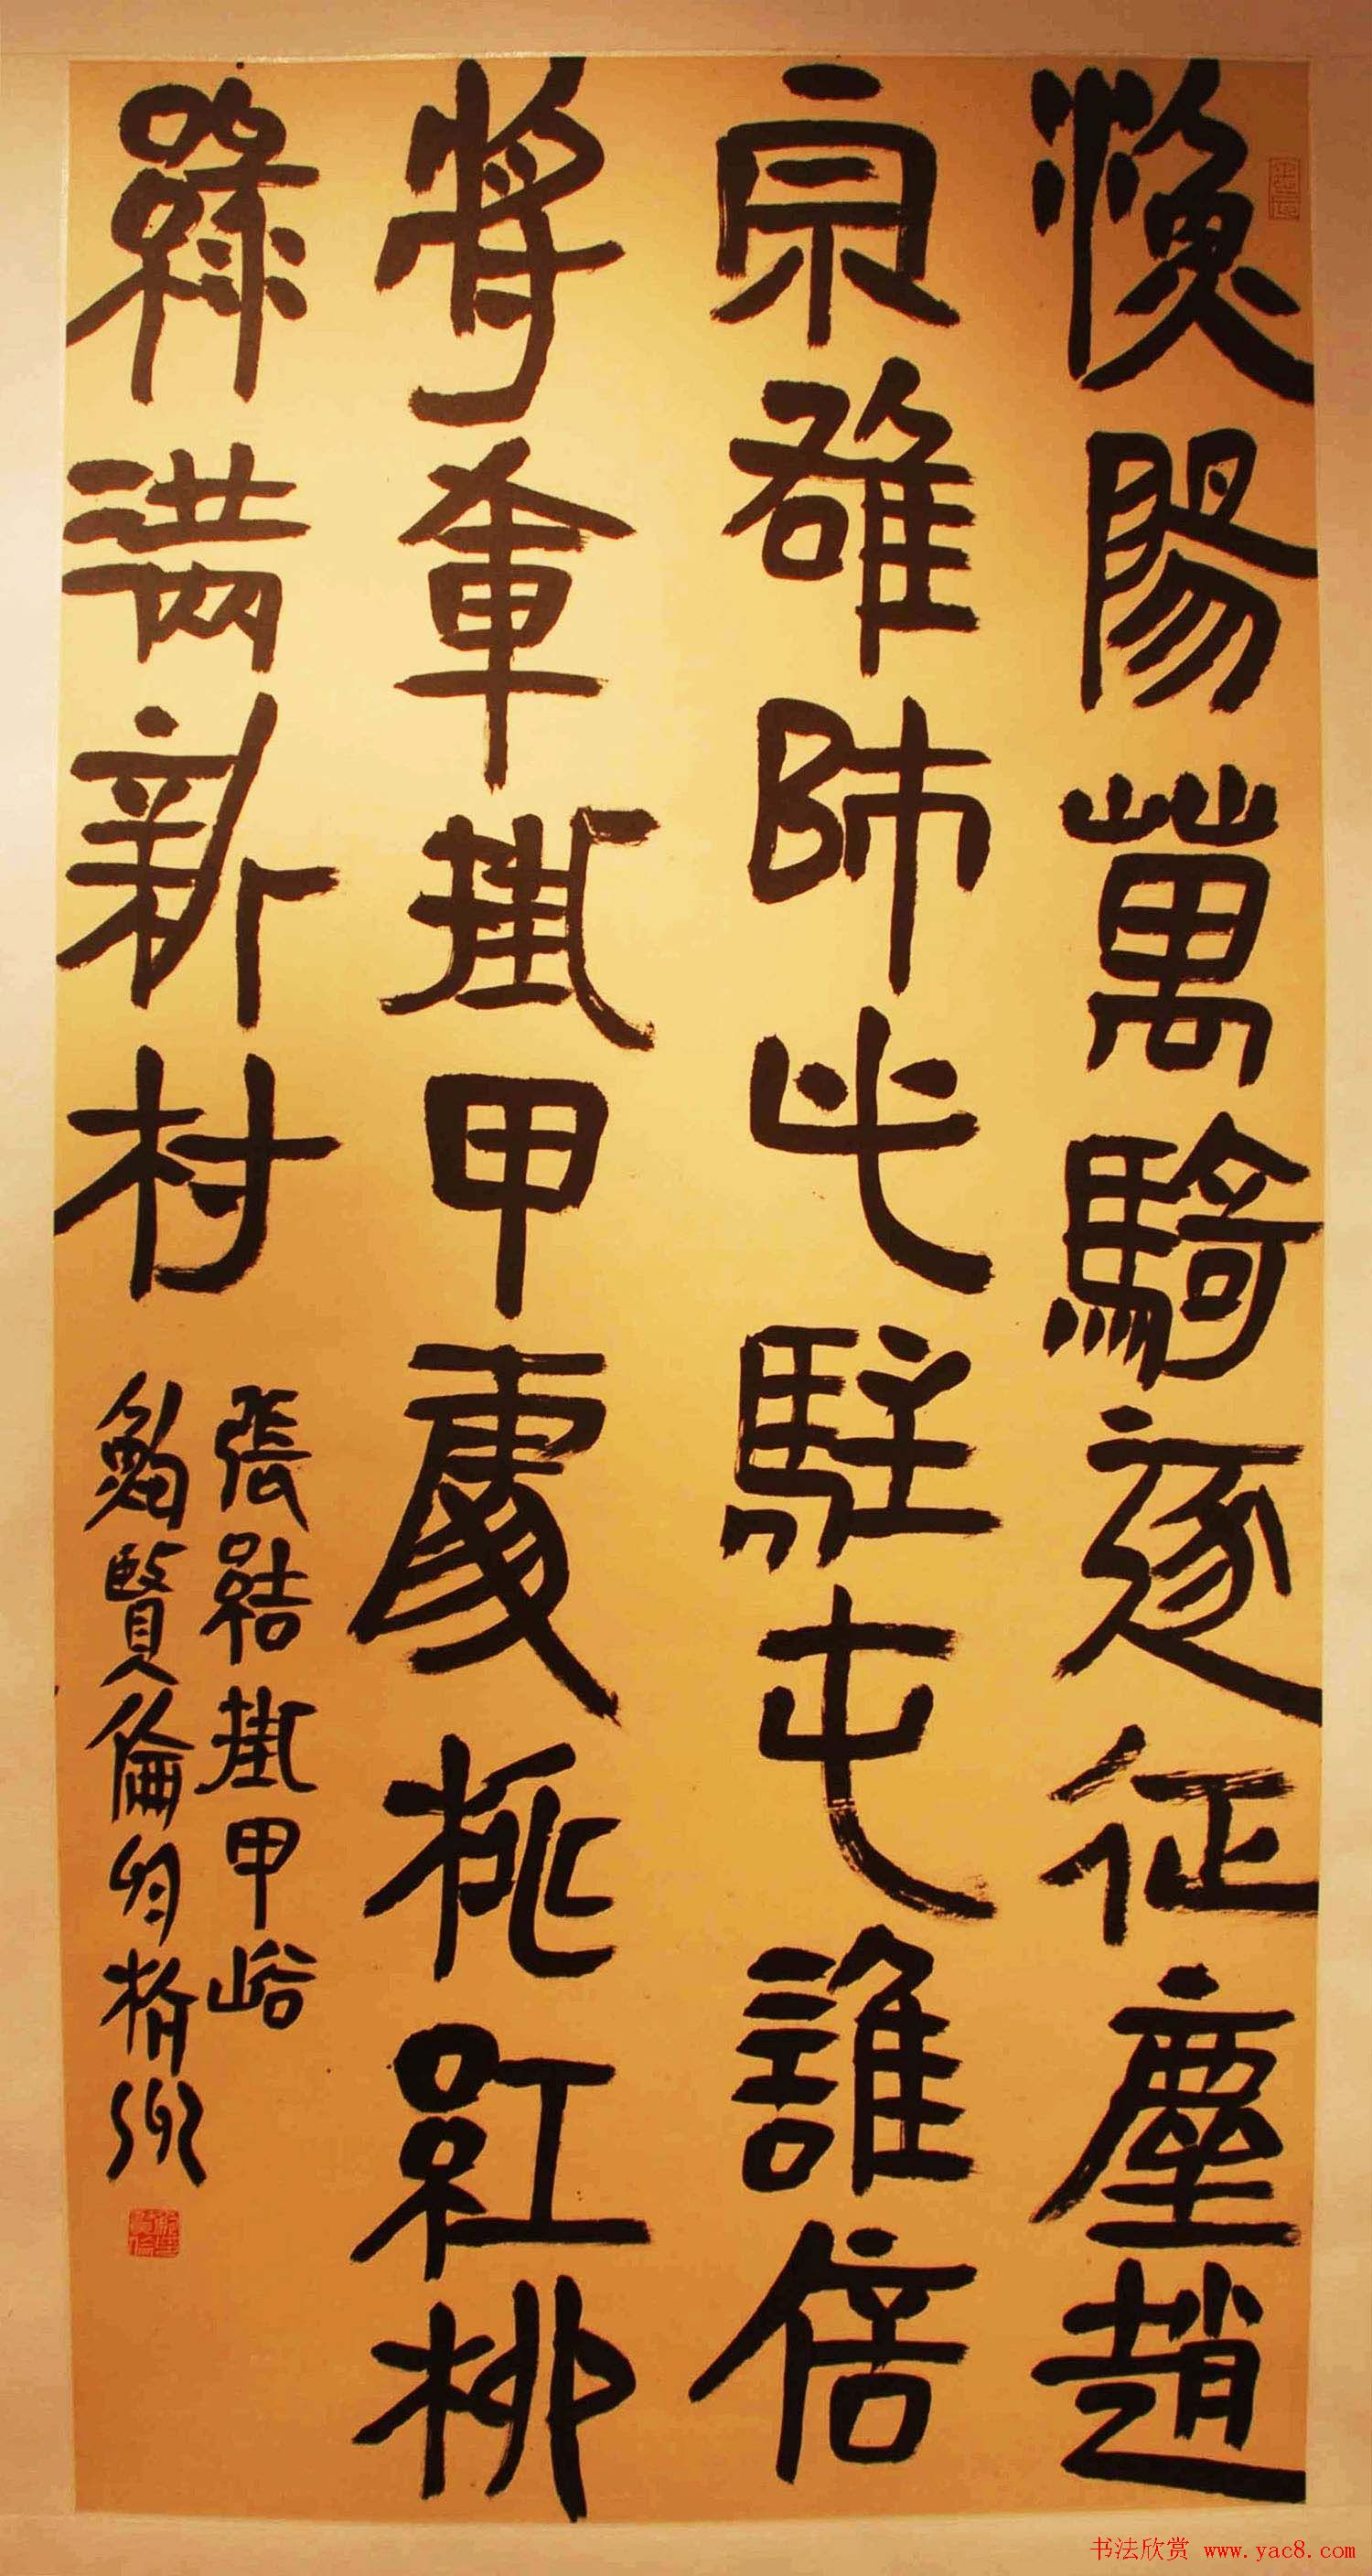 漁陽萬騎逐征塵趙
宗雄師此駐屯誰信
將軍掛甲處桃紅柳
綠滿新村
張結掛甲峪
鮑賢倫
书法欣赏 www.yac8.com